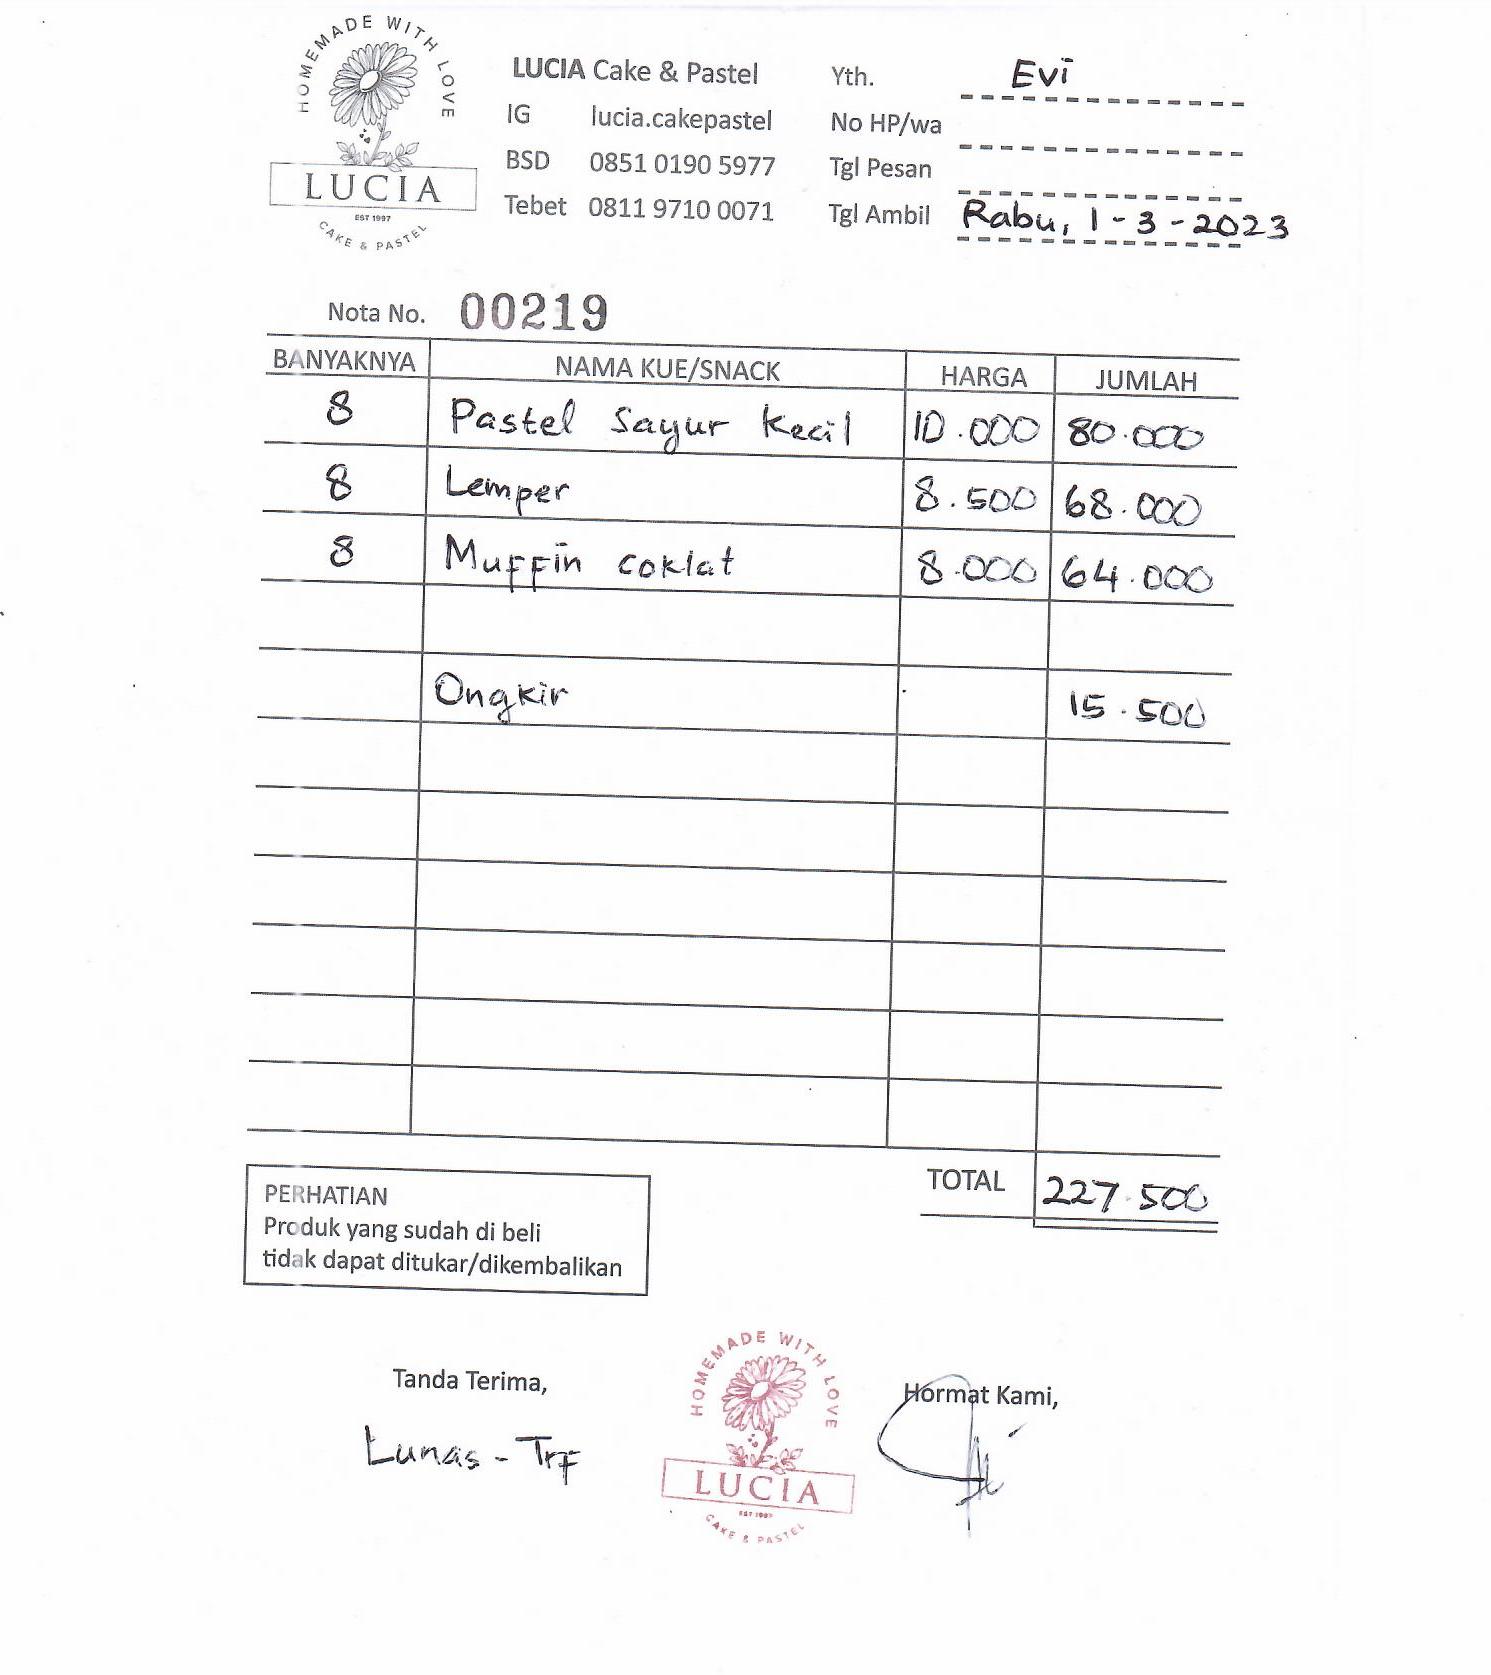 HOMEMADE WITH LOVE
LUCIA
EST 1997
CAKE & PASTEL
LUCIA Cake & Pastel
IG lucia.cakepastel
BSD 0851 0190 5977
Tebet 0811 9710 0071
Yth. Evi
No HP/wa
Tgl Pesan
Tgl Ambil Rabu, 1-3-2023
Nota No. 00219
BANYAKNYA NAMA KUE/SNACK HARGA JUMLAH
8 Pastel Sayur Kecil 10.000 80.000
8 Lemper 8.500 68.000
8 Muffin coklat 8.000 64.000
Ongkir 15.500
TOTAL 227.500
PERHATIAN
Produk yang sudah di beli
tidak dapat ditukar/dikembalikan
Tanda Terima,
Lunas - TrF
HOMEMADE WITH LOVE
LUCIA
EST 1997
CAKE & PASTEL
Hormat Kami,